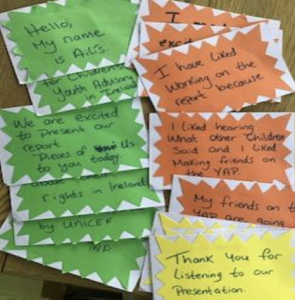 Hello,
My name
is Ailís.
for Children's
Youth Advisory
in Ireland
We are excited
to Present our
report
'Pieces of Us.
to you today
rights in Ireland
by UNICEF
I
I have Liked
Working on the
report because
I Liked hearing
What other Children
Said and I Liked
Making friends on
the YAP.
My friends on t
YAP are going
Thank You for
Listening to our
Presentation.